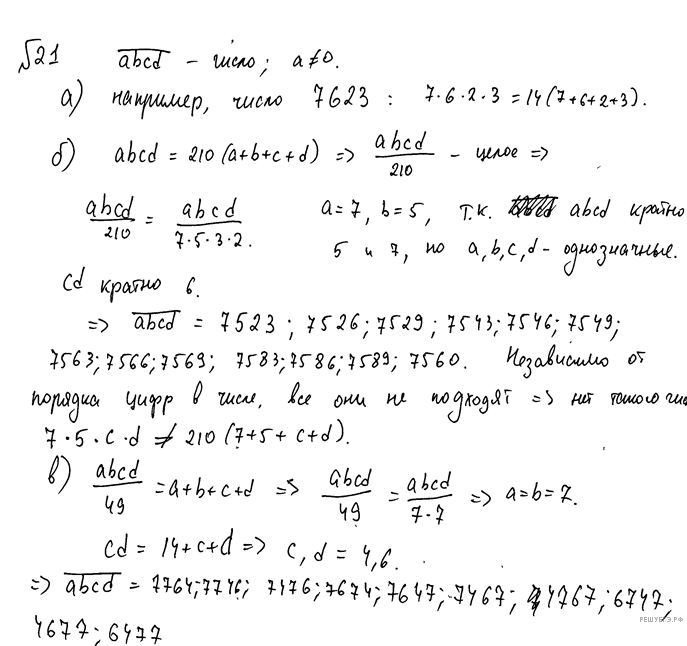 №21 abcd - число; a≠0.
а) например, число 7623 : 7·6·2·3 = 14(7+6+2+3).
б) abcd = 210(a+b+c+d) => abcd/210 - целое =>
abcd/210 = abcd/7·5·3·2. a=7, b=5, т.к. abcd кратно
5 и 7, но a,b,c,d - однозначные.
cd кратно 6.
=> abcd = 7523; 7526; 7529; 7543; 7546; 7549;
7563; 7566; 7569; 7583; 7586; 7589; 7560. Независимо от
порядка цифр в числе, все они не подходят => нет такого чис
7·5·c·d ≠ 210(7+5+c+d).
в) abcd/49 = a+b+c+d => abcd/49 = abcd/7·7 => a=b=7.
cd = 14+c+d => c,d = 4,6.
=> abcd = 7764; 7746; 7476; 7674; 7647; 7467; 4767; 6747;
4677; 6477
РЕШУЕГЭ.РФ